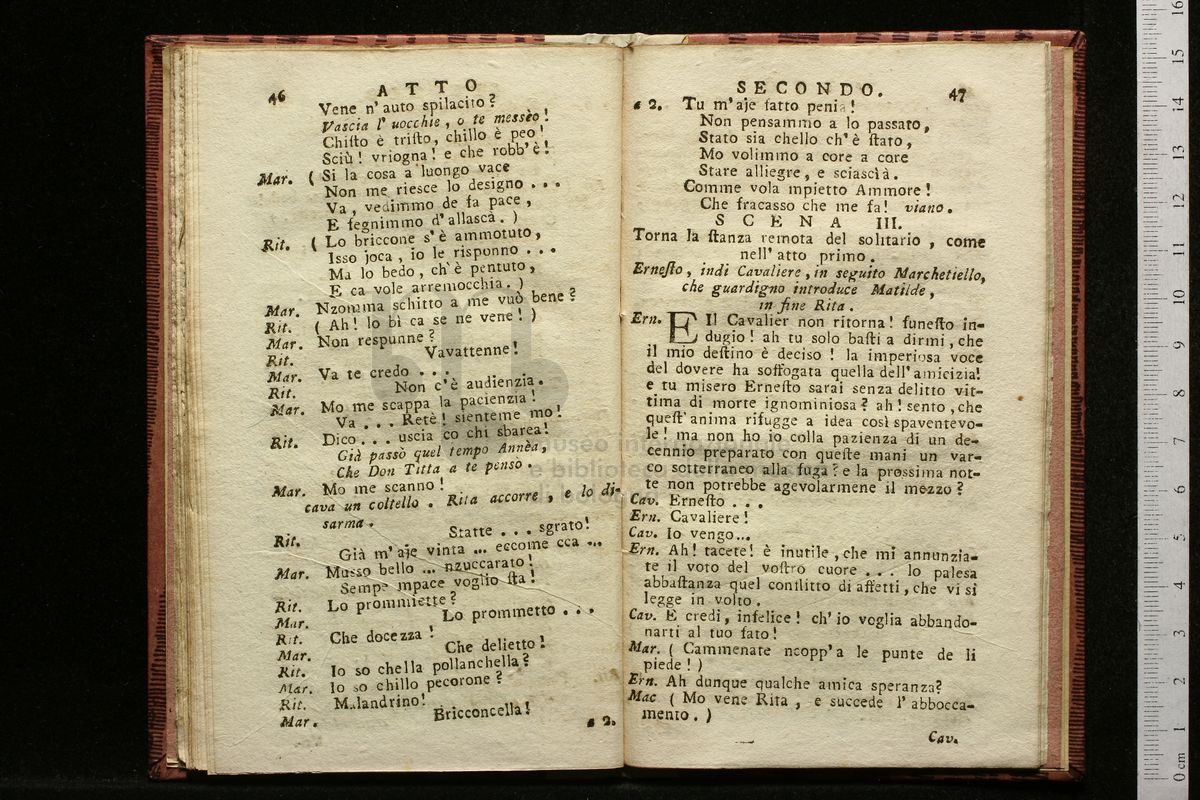 46 ATTO
Vene n' auto spilacito?
Vascia l' uocchie, o te messèo!
Chisto è tristo, chillo è peo!
Sciù! vriogna! e che robb'è!
Mar. ( Si la cosa a luongo vace
Non me riesce lo designo . . .
Va, vedimmo de fa pace,
E fegnimmo d' allascà. )
Rit. ( Lo briccone s'è ammotuto,
Isso joca, io le risponno . . .
Ma lo bedo, ch'è pentuto,
E ca vole arremocchia. )
Mar. Nzomma schitto a me vuò bene?
Rit. ( Ah! lo bì ca se ne vene! )
Mar. Non respunne?
Rit. Vavattenne!
Mar. Va te credo . . .
Rit. Non c'è audienzia.
Mar. Mo me scappa la pacienzia!
Va . . . Retè! sienteme mo!
Rit. Dico . . . uscia co chi sbarea!
Già passò quel tempo Annèa,
Che Don Titta a te penso.
Mar. Mo me scanno!
cava un coltello. Rita accorre, e lo di-
sarma.
Rit. Statte . . . sgrato!
Già m'aje vinta ... eccome cca ...
Mar. Musso bello ... nzuccarato!
Sempe mpace voglio sta!
Rit. Lo prommiette?
Mar. Lo prommetto . . .
Rit. Che docezza!
Mar. Che delietto!
Rit. Io so chella pollanchella?
Mar. Io so chillo pecorone?
Rit. Malandrino!
Mar. Bricconcella!
a 2.
SECONDO. 47
a 2. Tu m'aje fatto penia!
Non pensammo a lo passato,
Stato sia chello ch'è stato,
Mo volimmo a core a core
Stare alliegre, e sciascià.
Comme vola mpietto Ammore!
Che fracasso che me fa! viano.
SCENA III.
Torna la stanza remota del solitario, come
nell' atto primo.
Ernesto, indi Cavaliere, in seguito Marchetiello,
che guardigno introduce Matilde,
in fine Rita.
Ern. E Il Cavalier non ritorna! funesto in-
dugio! ah tu solo basti a dirmi, che
il mio destino è deciso! la imperiosa voce
del dovere ha soffogata quella dell' amicizia!
e tu misero Ernesto sarai senza delitto vit-
tima di morte ignominiosa? ah! sento, che
quest' anima rifugge a idea così spaventevo-
le! ma non ho io colla pazienza di un de-
cennio preparato con queste mani un var-
co sotterraneo alla fuga? e la prossima not-
te non potrebbe agevolarmene il mezzo?
Cav. Ernesto . . .
Ern. Cavaliere!
Cav. Io vengo...
Ern. Ah! tacete! è inutile, che mi annunzia-
te il voto del vostro cuore . . . lo palesa
abbastanza quel conflitto di affetti, che vi si
legge in volto.
Cav. E credi, infelice! ch' io voglia abbando-
narti al tuo fato!
Mar. ( Cammenate ncopp'a le punte de li
piede! )
Ern. Ah dunque qualche amica speranza?
Mac ( Mo vene Rita, e succede l' abbocca-
mento. )
Cav.